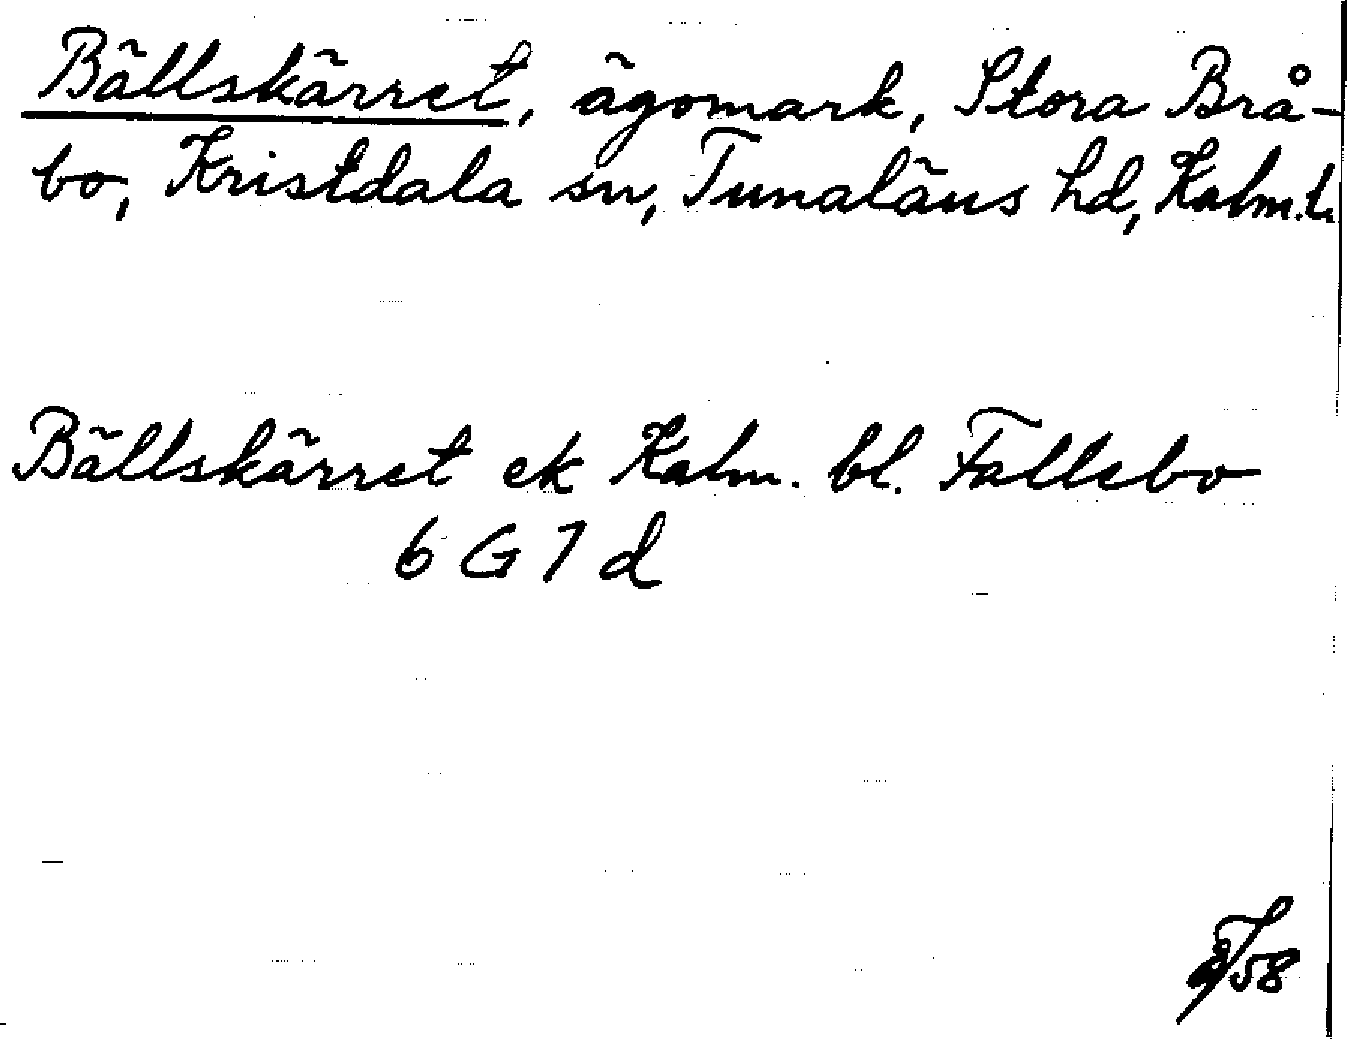 Bällskärret, ägomark, Stora Brå-
bo, Kristdala sn, Tunaläns hd, Kalm. l.
Bällskärret ek Kalm. bl. Fallebo
6 G 7 d
58